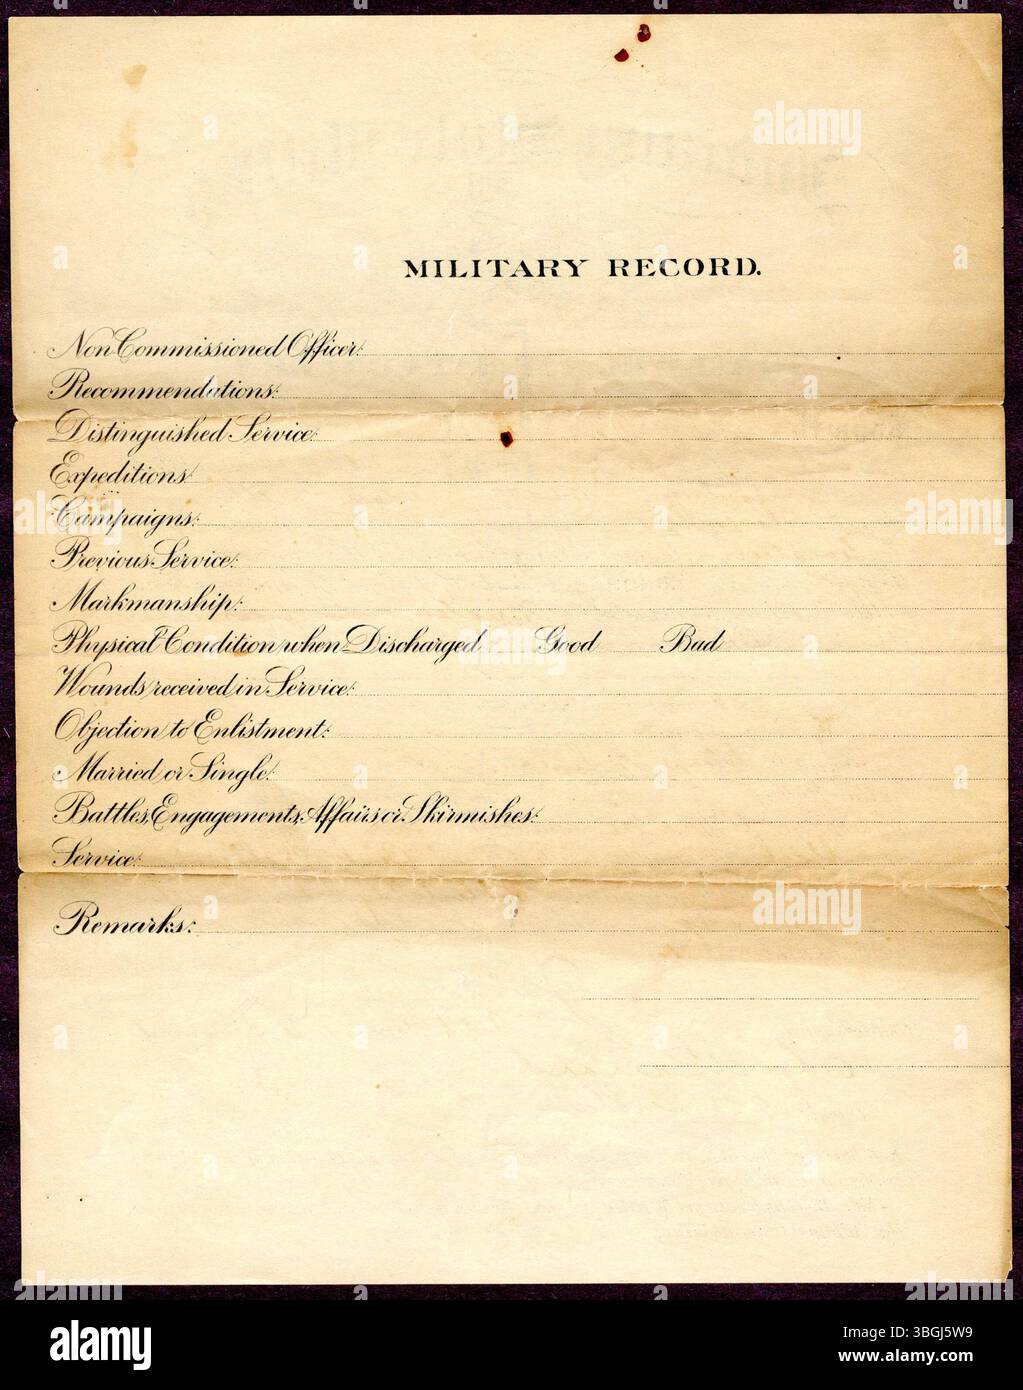 MILITARY RECORD.
Non Commissioned Officer:
Recommendations:
Distinguished Service:
Expeditions:
Campaigns:
Previous Service:
Markmanship:
Physical Condition when Discharged Good Bad
Wounds received in Service:
Objection to Enlistment:
Married or Single:
Battles, Engagements, Affairs or Skirmishes:
Service:
Remarks:
alamy
Image ID: 3BGJ5W9
www.alamy.com